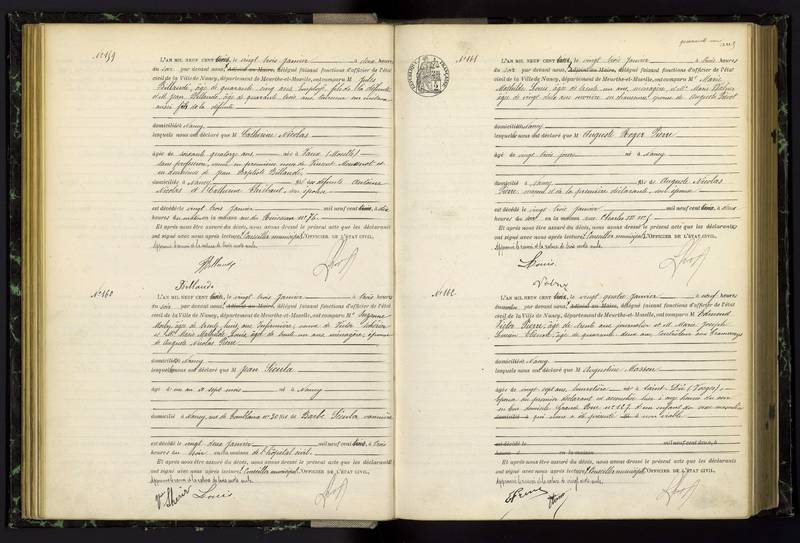 N° 159
L'AN MIL NEUF CENT trois, le vingt trois Janvier à deux heures
du soir par devant nous, Adjoint au Maire, délégué faisant fonctions d'officier de l'état
civil de la Ville de Nancy, département de Meurthe-et-Moselle, ont comparu M Jules
Billaude, âgé de quarante cinq ans employé, fils de la défunte
et M Jean Billaude, âgé de quarante trois ans,
aussi fils de la défunte
domiciliés à Nancy
lesquels nous ont déclaré que M Catherine Nicolas
âgée de soixante quatorze ans, née à Vaux (Moselle)
sans profession, veuve en premières noces de Vincent
en secondes de Jean Baptiste Billaude,
domiciliée à Nancy, fille des défunts Antoine
Nicolas et Catherine Thibaut, son épouse
est décédée le vingt trois Janvier mil neuf cent trois, à dix
heures du matin en la maison rue du Ruisseau n° 76.
Et après nous être assuré du décès, nous avons dressé le présent acte que les déclarants
ont signé avec nous après lecture. Conseiller municipal OFFICIER DE L'ÉTAT CIVIL.
Approuvé le renvoi et la rature de trois mots nuls.
Billaude
Billaude
N° 160
L'AN MIL NEUF CENT trois, le vingt trois Janvier à trois heures
du soir par devant nous, Adjoint au Maire, délégué faisant fonctions d'officier de l'état
civil de la Ville de Nancy, département de Meurthe-et-Moselle, ont comparu Mme Suzanne
âgée de trente huit ans Infirmière, veuve de Victor
et Mme Marie Mathilde Louis âgée de trente un ans ménagère, épouse
de Auguste Nicolas Pierre
domiciliées à Nancy
lesquelles nous ont déclaré que M Jean Sicula
âgé d'un an et sept mois né à Nancy
domicilié à Nancy, rue de n° 30 fils de Barbe Sicula
est décédé le vingt deux Janvier mil neuf cent trois, à trois
heures du soir en la maison de l'hôpital civil.
Et après nous être assuré du décès, nous avons dressé le présent acte que les déclarants
ont signé avec nous après lecture. Conseiller municipal OFFICIER DE L'ÉTAT CIVIL.
Approuvé le renvoi et la rature de trois mots nuls.
Louis
quarante un
N° 161
RÉPUBLIQUE FRANÇAISE
L'AN MIL NEUF CENT trois, le vingt trois Janvier à trois heures
du soir par devant nous, Adjoint au Maire, délégué faisant fonctions d'officier de l'état
civil de la Ville de Nancy, département de Meurthe-et-Moselle, ont comparu Me Marie
Mathilde Louis âgée de trente un ans, ménagère, et Me Marie
âgée de vingt six ans ouvrière en chaussures, épouse de Auguste
domiciliées à Nancy
lesquelles nous ont déclaré que M Auguste Roger Pierre
âgé de vingt trois jours né à Nancy
domicilié à Nancy fils de Auguste Nicolas
Pierre, et de la première déclarante, son épouse
est décédé le vingt trois Janvier mil neuf cent trois, à deux
heures du soir en la maison rue Charles III n° 5
Et après nous être assuré du décès, nous avons dressé le présent acte que les déclarants
ont signé avec nous après lecture. Conseiller municipal OFFICIER DE L'ÉTAT CIVIL.
Approuvé le renvoi et la rature de trois mots nuls.
Louis
N° 162.
L'AN MIL NEUF CENT trois, le vingt quatre Janvier à neuf heures
du matin par devant nous, Adjoint au Maire, délégué faisant fonctions d'officier de l'état
civil de la Ville de Nancy, département de Meurthe-et-Moselle, ont comparu M Edmond
Victor Pierre, âgé de trente ans journalier et M Marie Joseph
âgé de quarante deux ans, Contrôleur aux Tramways
domiciliés à Nancy
lesquels nous ont déclaré que M Augustine Masson
âgée de vingt sept ans, née à Saint-Dié (Vosges),
épouse du premier déclarant est accouchée hier à six heures du soir
en son domicile Grande Rue n° 127 d'un enfant du sexe masculin
qui nous a été présenté sans vie et non viable
est décédé le mil neuf cent deux, à
heures d en la maison
Et après nous être assuré du décès, nous avons dressé le présent acte que les déclarants
ont signé avec nous après lecture. Conseiller municipal OFFICIER DE L'ÉTAT CIVIL.
Approuvé le renvoi et la rature de vingt mots nuls.